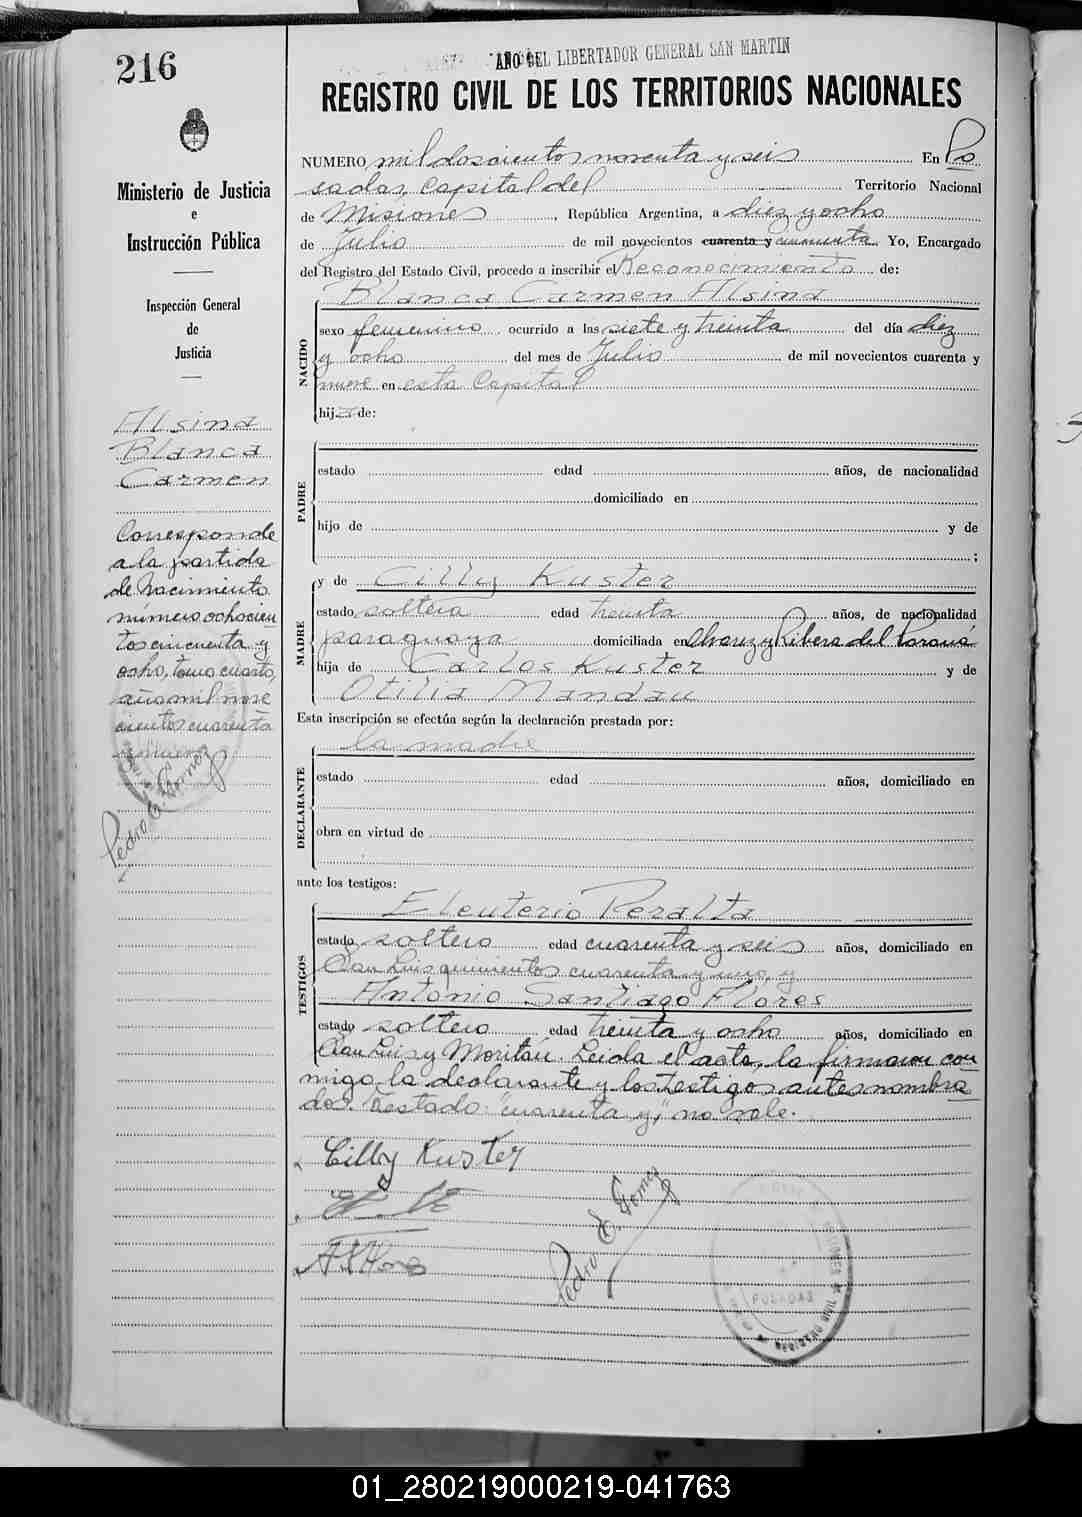 216
AÑO DEL LIBERTADOR GENERAL SAN MARTIN
REGISTRO CIVIL DE LOS TERRITORIOS NACIONALES
Ministerio de Justicia
e
Instrucción Pública
Inspección General
de
Justicia
Alsina
Blanca
Carmen
Corresponde
a la partida
de Nacimiento
número ochocien
tos cincuenta y
ocho, tomo cuarto,
año mil nove
cientos cuarenta
y nueve
Pedro E. Gomez
NUMERO mil doscientos noventa y seis En Po
sadas, Capital del Territorio Nacional
de Misiones, República Argentina, a diez y ocho
de Julio de mil novecientos cuarenta y cincuenta. Yo, Encargado
del Registro del Estado Civil, procedo a inscribir el Reconocimiento de:
NACIDO
Blanca Carmen Alsina
sexo femenino, ocurrido a las siete y treinta del día diez
y ocho del mes de Julio de mil novecientos cuarenta y
nueve en esta Capital
hija de:
PADRE
estado edad años, de nacionalidad
domiciliado en
hijo de y de
;
MADRE
y de Cilly Kuster
estado soltera edad treinta años, de nacionalidad
paraguaya domiciliada en Alvarez y Ribera del Paraná
hija de Carlos Kuster y de
Otilia Mandau
Esta inscripción se efectúa según la declaración prestada por:
DECLARANTE
la madre
estado edad años, domiciliado en
obra en virtud de
ante los testigos:
TESTIGOS
Eleuterio Peralta
estado soltero edad cuarenta y seis años, domiciliado en
San Luis quinientos cuarenta y uno, y
Antonio Santiago Flores
estado soltero edad treinta y ocho años, domiciliado en
San Luis y Moritán. Leida el acta, la firmaron con
migo, la declarante y los testigos antes nombra
dos. Testado: "cuarenta y", no vale.
Cilly Kuster
Pedro E. Gomez
POSADAS
REGISTRO CIVIL
01_280219000219-041763